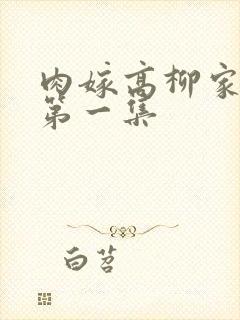 肉嫁高柳家
第一集
白苕